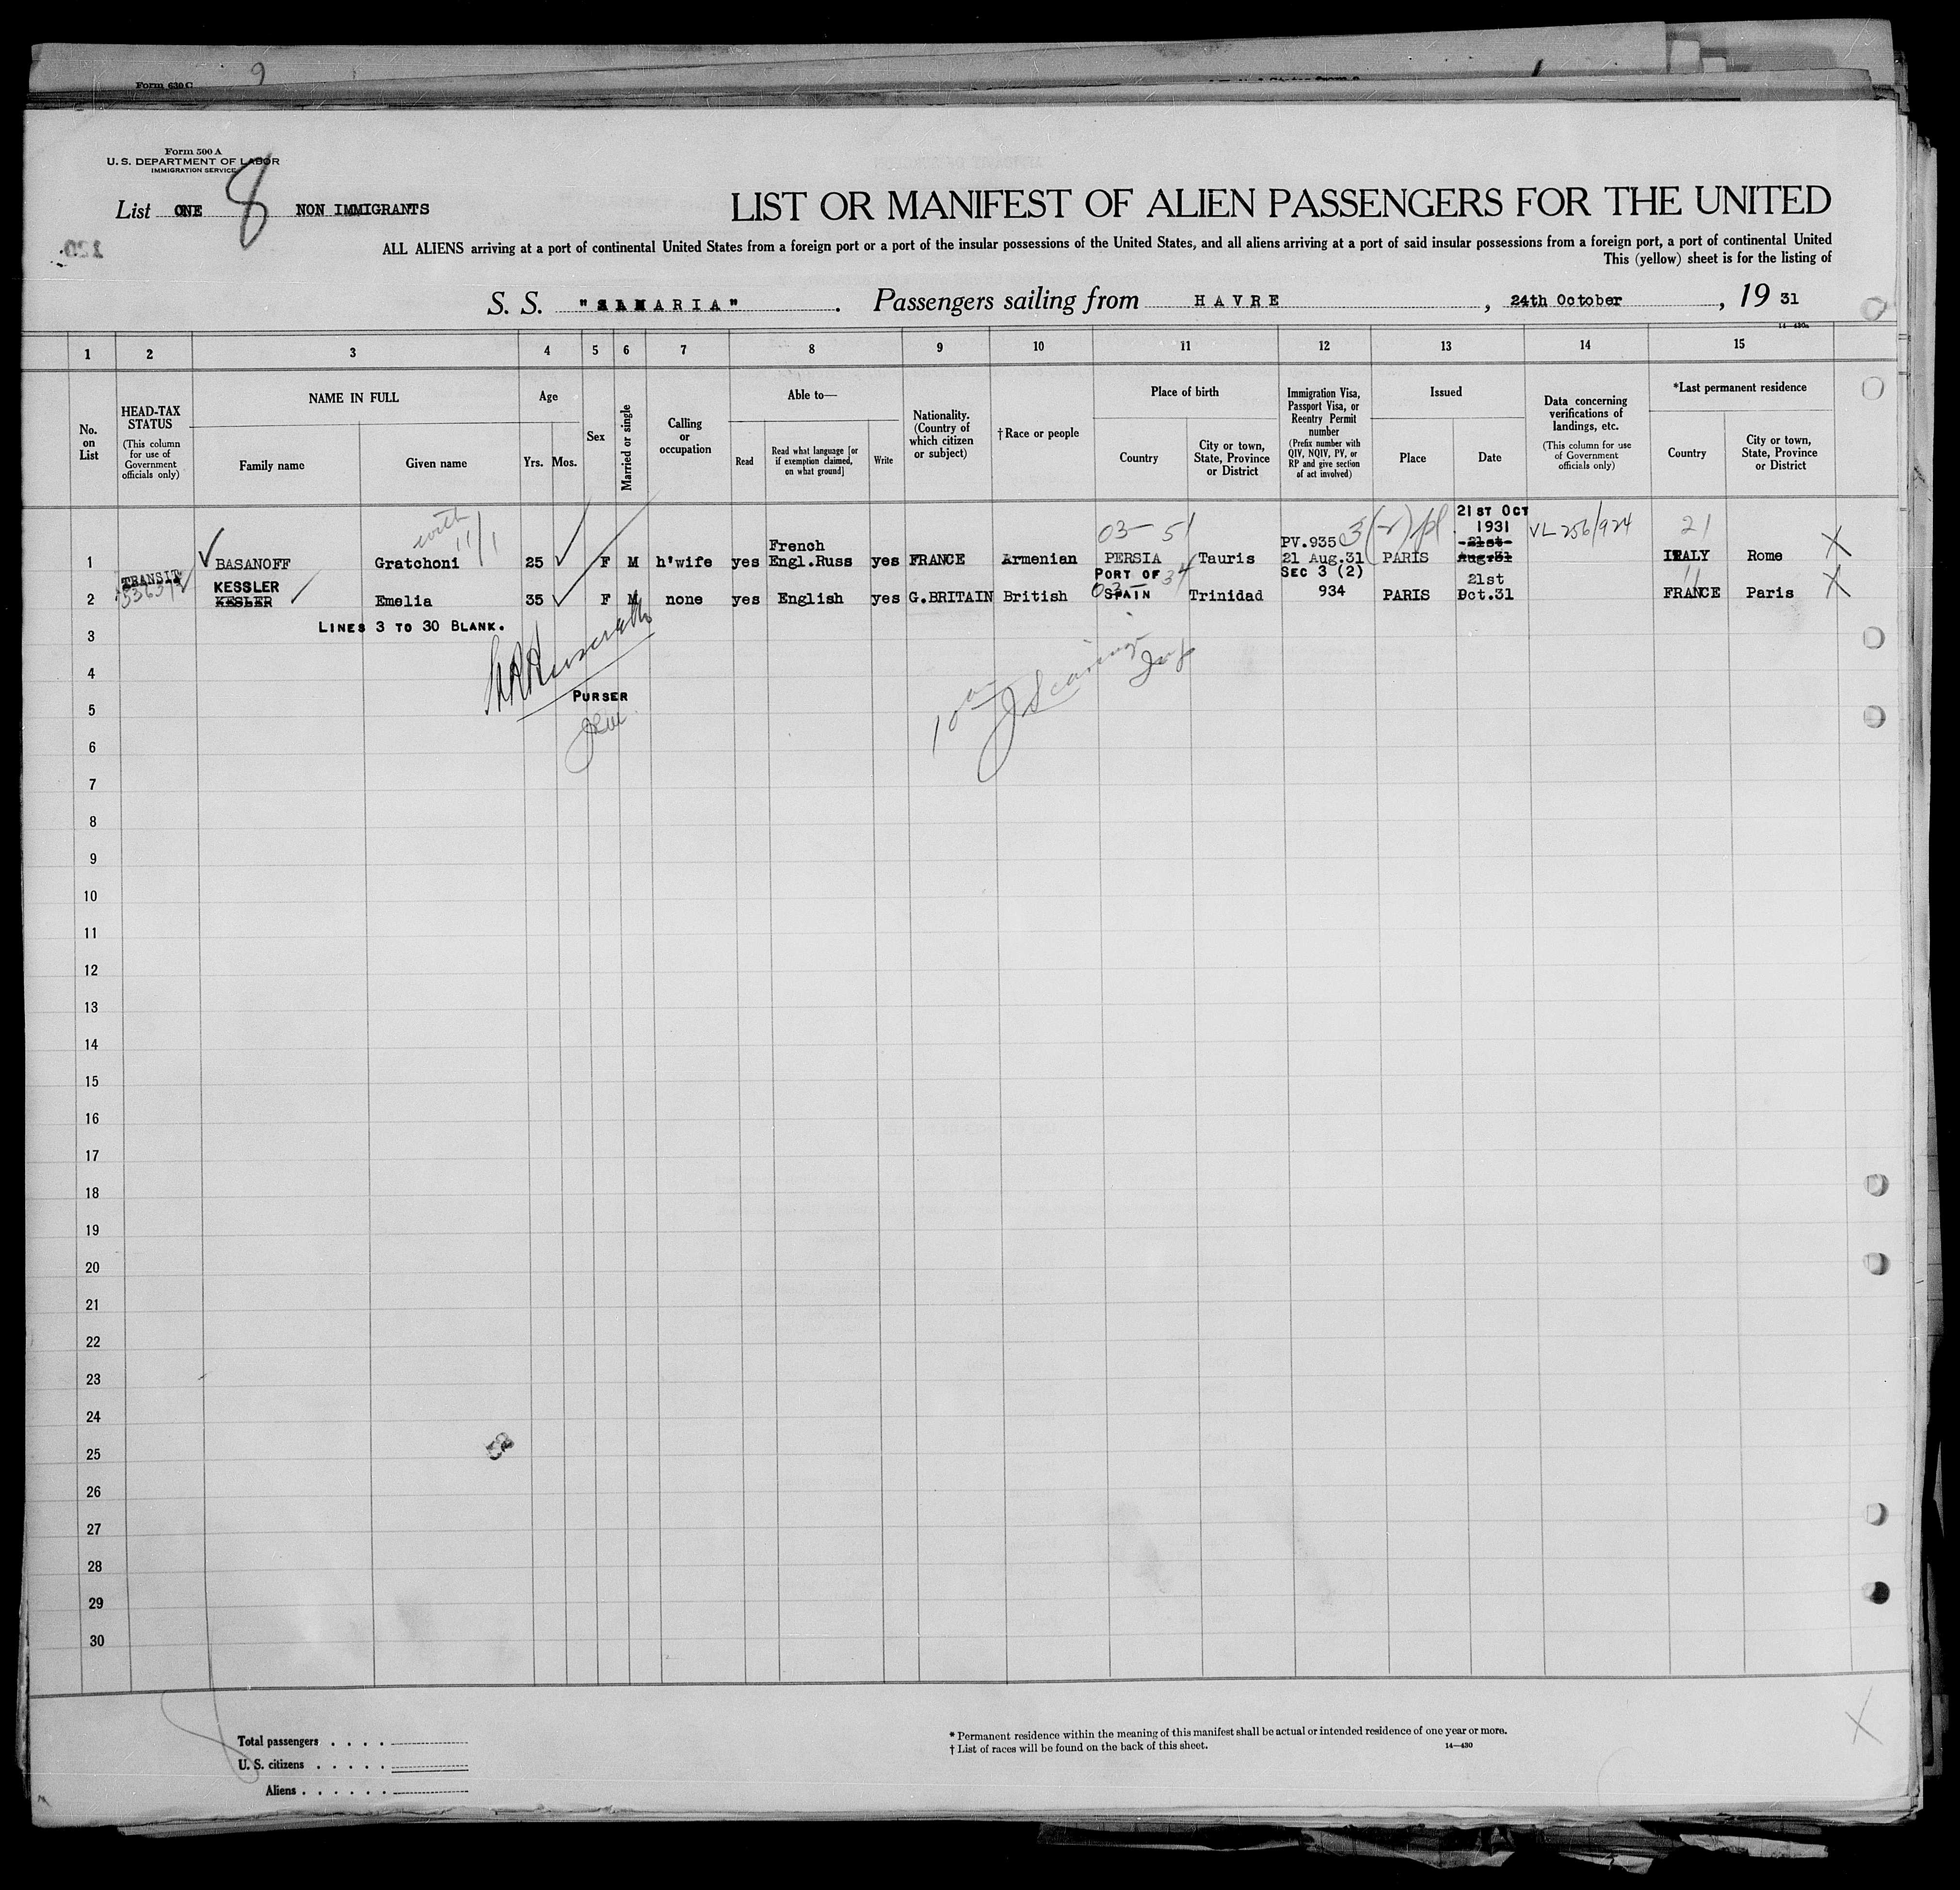 Form 630 C
9
Form 500 A
U. S. DEPARTMENT OF LABOR
IMMIGRATION SERVICE
List ONE 8 NON IMMIGRANTS
LIST OR MANIFEST OF ALIEN PASSENGERS FOR THE UNITED
120
ALL ALIENS arriving at a port of continental United States from a foreign port or a port of the insular possessions of the United States, and all aliens arriving at a port of said insular possessions from a foreign port, a port of continental United
This (yellow) sheet is for the listing of
S. S. "SAMARIA". Passengers sailing from HAVRE, 24th October, 19 31
14-430a
1 2 3 4 5 6 7 8 9 10 11 12 13 14 15
No. on List
HEAD-TAX STATUS (This column for use of Government officials only)
NAME IN FULL
Family name Given name
Age
Yrs. Mos.
Sex
Married or single
Calling or occupation
Able to—
Read Read what language [or if exemption claimed, on what ground] Write
Nationality. (Country of which citizen or subject)
†Race or people
Place of birth
Country City or town, State, Province or District
Immigration Visa, Passport Visa, or Reentry Permit number (Prefix number with QIV, NQIV, PV, or RP and give section of act involved)
Issued
Place Date
Data concerning verifications of landings, etc. (This column for use of Government officials only)
*Last permanent residence
Country City or town, State, Province or District
with 11/1 03-51 3(2) 21ST OCT 1931 VL 256/924 21
1 BASANOFF Gratchoni 25 F M h'wife yes French Engl.Russ yes FRANCE Armenian PERSIA Tauris PV.935 21 Aug.31 PARIS 21st Aug.31 ITALY Rome X
TRANSIT KESSLER PORT OF 34 SEC 3 (2) 21st 11
2 KESLER Emelia 35 F M none yes English yes G.BRITAIN British 03- SPAIN Trinidad 934 PARIS Oct.31 FRANCE Paris X
LINES 3 TO 30 BLANK.
3
4
PURSER
5
6
7
8
9
10
11
12
13
14
15
16
17
18
19
20
21
22
23
24
25
26
27
28
29
30
Total passengers . . . .
U. S. citizens . . . . .
Aliens . . . . . .
* Permanent residence within the meaning of this manifest shall be actual or intended residence of one year or more.
† List of races will be found on the back of this sheet.
14—430
X